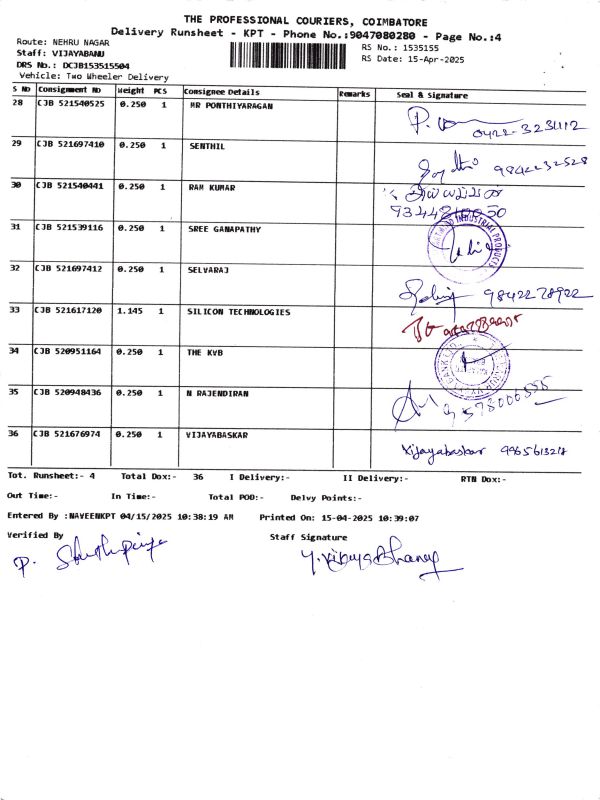 THE PROFESSIONAL COURIERS, COIMBATORE
Delivery Runsheet - KPT - Phone No.:9047080280 - Page No.:4
Route: NEHRU NAGAR
RS No.: 1535155
Staff: VIJAYABANU
RS Date: 15-Apr-2025
DRS No.: DCJB153515504
Vehicle: Two Wheeler Delivery
S No Consignment No Weight PCS Consignee Details Remarks Seal & Signature
28 CJB 521540525 0.250 1 MR PONTHIYARAGAN
0422-3231112
29 CJB 521697410 0.250 1 SENTHIL
9842232528
30 CJB 521540441 0.250 1 RAM KUMAR
31 CJB 521539116 0.250 1 SREE GANAPATHY
INDUSTRIAL PRODUCTS
32 CJB 521697412 0.250 1 SELVARAJ
9842278922
33 CJB 521617120 1.145 1 SILICON TECHNOLOGIES
34 CJB 520951164 0.250 1 THE KVB
35 CJB 520948436 0.250 1 N RAJENDIRAN
36 CJB 521676974 0.250 1 VIJAYABASKAR
Vijayabaskar
Tot. Runsheet:- 4 Total Dox:- 36 I Delivery:- II Delivery:- RTN Dox:-
Out Time:- In Time:- Total POD:- Delvy Points:-
Entered By :NAVEENKPT 04/15/2025 10:38:19 AM Printed On: 15-04-2025 10:39:07
Verified By Staff Signature